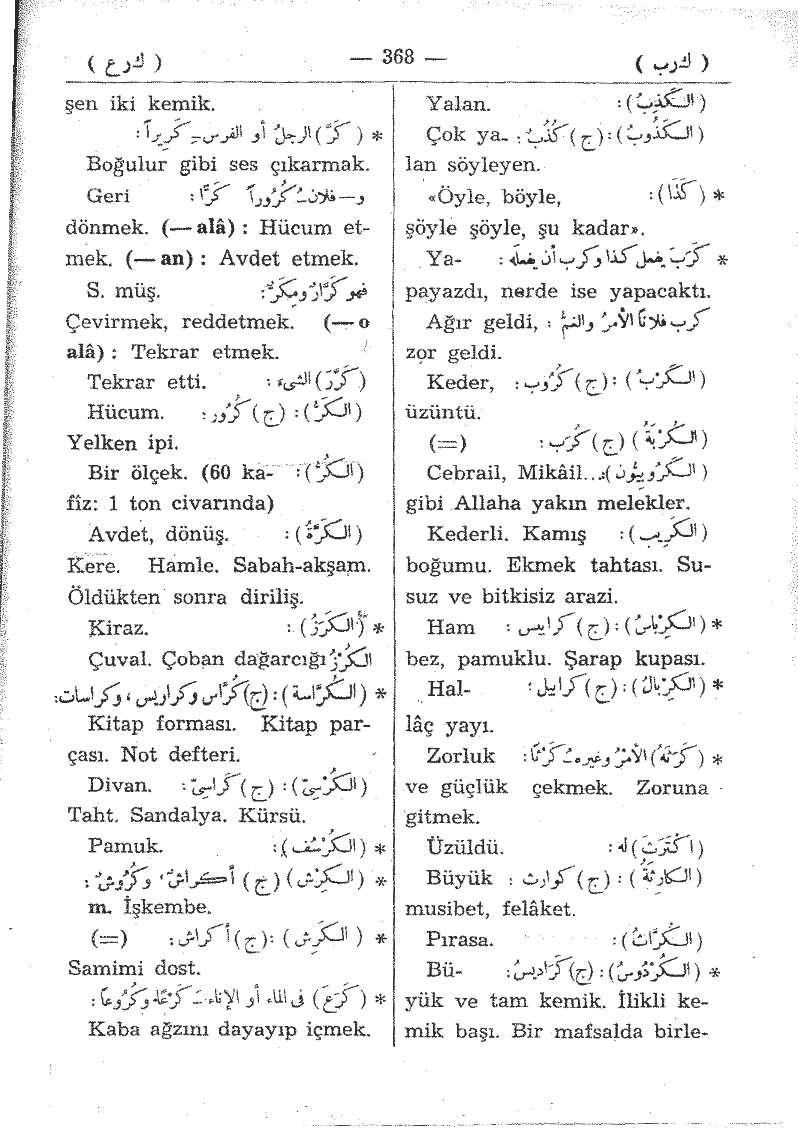 ( كرب )
— 368 —
( كرع )
(الكَذِبُ): Yalan.
(الكَذُوبُ): (ج) كُذُبٌ: Çok ya-
lan söyleyen.
* (كَذَا): «Öyle, böyle,
şöyle şöyle, şu kadar».
* كَرَبَ يفعل كذا وكرب أن يفعله: Ya-
payazdı, nerde ise yapacaktı.
كرب فلاناً الأمرُ والغمُّ: Ağır geldi,
zor geldi.
(الكَرْبُ): (ج) كُرُوب: Keder,
üzüntü.
(الكُرْبَةُ) (ج) كُرَب: (=)
(الكَرُوبِيُّون): Cebrail, Mikâil..
gibi Allaha yakın melekler.
(الكَرِيب): Kederli. Kamış
boğumu. Ekmek tahtası. Su-
suz ve bitkisiz arazi.
* (الكِرْبَاسُ): (ج) كرابيس: Ham
bez, pamuklu. Şarap kupası.
* (الكِرْبَالُ): (ج) كرابيل: Hal-
lâç yayı.
* (كَرَثَهُ) الأمرُ وغيره ـُ كَرْثاً: Zorluk
ve güçlük çekmek. Zoruna
gitmek.
(اكْتَرَثَ) له: Üzüldü.
(الكارِثَةُ): (ج) كوارث: Büyük
musibet, felâket.
(الكُرَّاثُ): Pırasa.
* (الكُرْدُوسُ): (ج) كَرَادِيسُ: Bü-
yük ve tam kemik. İlikli ke-
mik başı. Bir mafsalda birle-
şen iki kemik.
* (كَرَّ) الرجلُ أو الفرس ـِ كَرِيراً:
Boğulur gibi ses çıkarmak.
و— فلان ـُ كُرُوراً كَرًّا: Geri
dönmek. (— alâ) : Hücum et-
mek. (— an) : Avdet etmek.
فهو كَرَّارٌ ومِكَرٌّ: S. müş.
Çevirmek, reddetmek. (— o
alâ) : Tekrar etmek.
(كَرَّرَ) الشيءَ: Tekrar etti.
(الكَرُّ): (ج) كُرُور: Hücum.
Yelken ipi.
(الكُرُّ): Bir ölçek. (60 ka-
fîz: 1 ton civarında)
(الكَرَّةُ): Avdet, dönüş.
Kere. Hamle. Sabah-akşam.
Öldükten sonra diriliş.
* (الكَرَزُ): Kiraz.
الكُرْزُ Çuval. Çoban dağarcığı
* (الكُرَّاسة): (ج) كُرَّاس وكراريس، وكراسات:
Kitap forması. Kitap par-
çası. Not defteri.
(الكُرْسِيُّ): (ج) كَراسِيّ: Divan.
Taht. Sandalya. Kürsü.
* (الكُرْسُف): Pamuk.
* (الكِرْش) (ج) أكراشٌ، وكُرُوشٌ:
m. İşkembe.
* (الكَرِش): (ج) أكراش: (=)
Samimi dost.
* (كَرَعَ) في الماء أو الإناء ـَ كَرْعًا وكُرُوعاً:
Kaba ağzını dayayıp içmek.